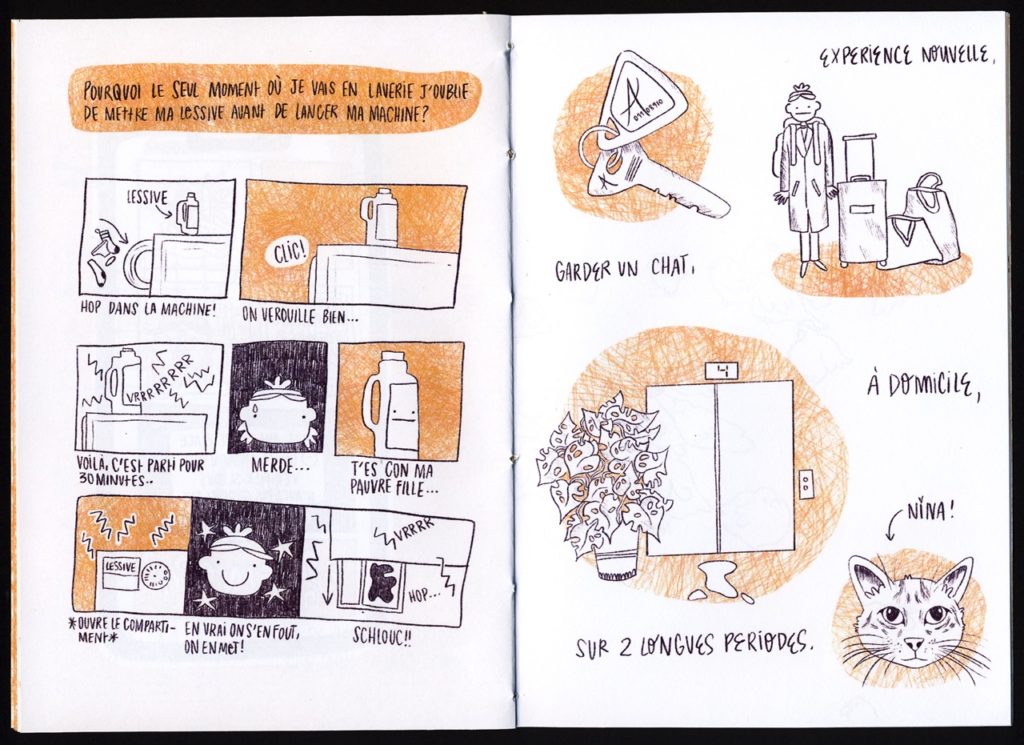 POURQUOI LE SEUL MOMENT OÙ JE VAIS EN LAVERIE J'OUBLIE
DE METTRE MA LESSIVE AVANT DE LANCER MA MACHINE?
LESSIVE
HOP DANS LA MACHINE!
CLIC!
ON VEROUILLE BIEN...
VRRRRRRRR
VOILÀ, C'EST PARTI POUR
30 MINUTES..
MERDE...
T'ES CON MA
PAUVRE FILLE...
LESSIVE
*OUVRE LE COMPARTI-
MENT*
EN VRAI ON S'EN FOUT,
ON EN MET!
VRRRK
HOP...
SCHLOUC!!
EXPERIENCE NOUVELLE,
GARDER UN CHAT,
4
À DOMICILE,
NINA!
SUR 2 LONGUES PERIODES.